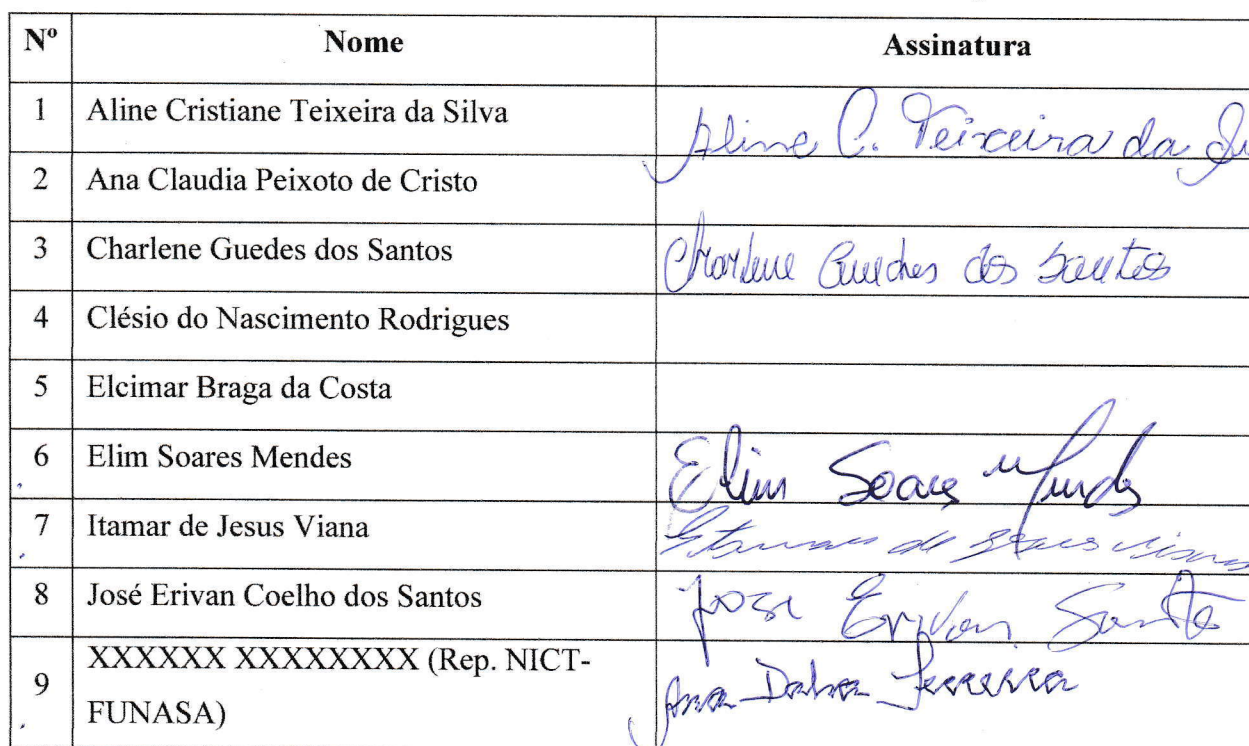 Nº Nome Assinatura
1 Aline Cristiane Teixeira da Silva Aline C. Teixeira da
2 Ana Claudia Peixoto de Cristo
3 Charlene Guedes dos Santos Charlene Guedes dos Santos
4 Clésio do Nascimento Rodrigues
5 Elcimar Braga da Costa
6 Elim Soares Mendes Elim Soares Mendes
7 Itamar de Jesus Viana Itamar de Jesus Viana
8 José Erivan Coelho dos Santos José Erivan Santos
9 XXXXXX XXXXXXXX (Rep. NICT-
FUNASA) Ana